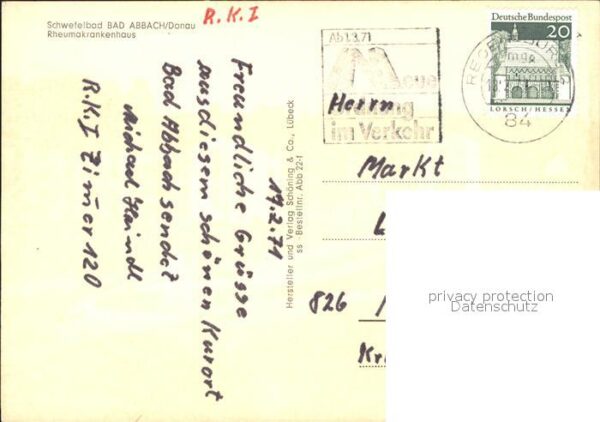 Schwefelbad BAD ABBACH/Donau
Rheumakrankenhaus
R.K.I
Freundliche Grüsse
aus diesem schönen Kurort
Bad Abbach sendet
Michael Haindl
R.K.I Zimer 120
19.2.71
Hersteller und Verlag Schöning & Co., Lübeck
ss · Bestellnr. Abb 22-1
Ab 1.3.71
Neue
Ordnung
im Verkehr
Deutsche Bundespost
20
LORSCH/HESSEN
84
Herrn
Markt
L
826
Kr
privacy protection
Datenschutz